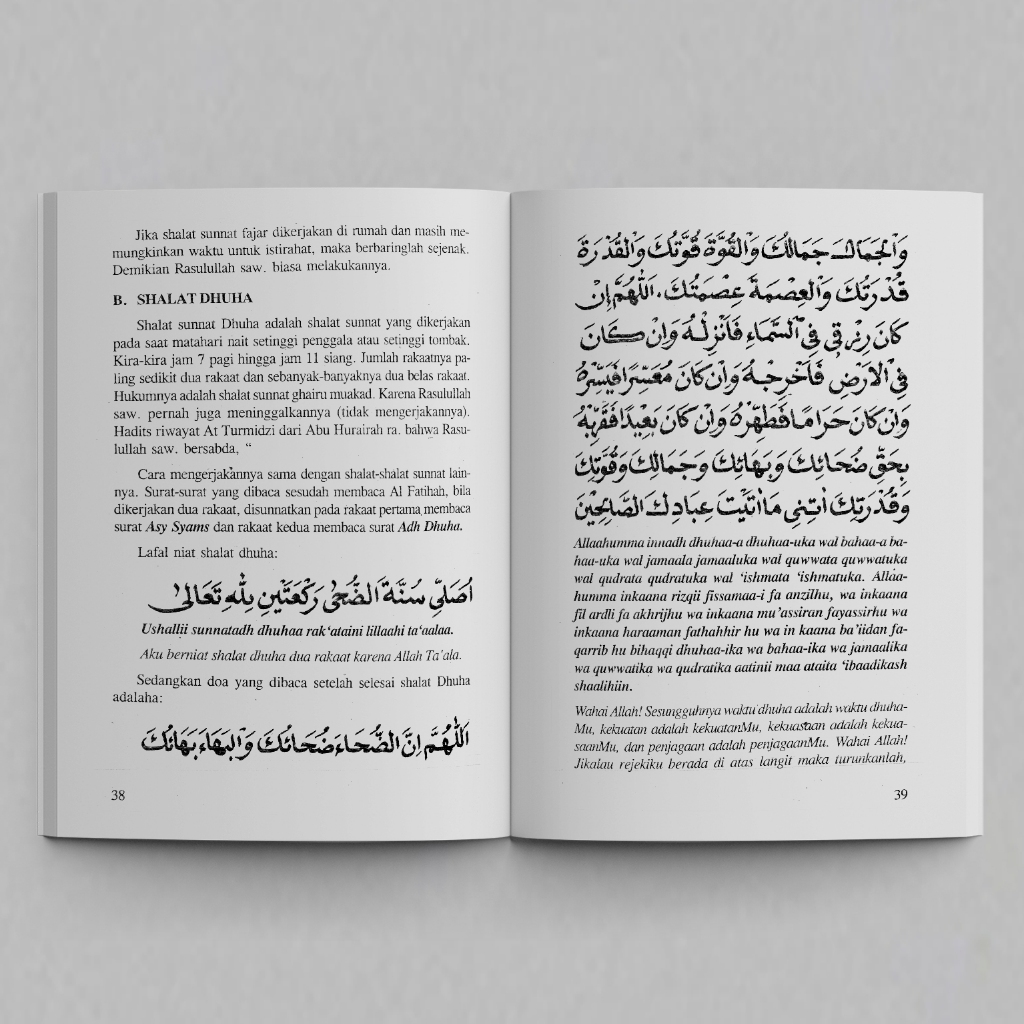 Jika shalat sunnat fajar dikerjakan di rumah dan masih me-
mungkinkan waktu untuk istirahat, maka berbaringlah sejenak.
Demikian Rasulullah saw. biasa melakukannya.
B. SHALAT DHUHA
Shalat sunnat Dhuha adalah shalat sunnat yang dikerjakan
pada saat matahari nait setinggi penggala atau setinggi tombak.
Kira-kira jam 7 pagi hingga jam 11 siang. Jumlah rakaatnya pa-
ling sedikit dua rakaat dan sebanyak-banyaknya dua belas rakaat.
Hukumnya adalah shalat sunnat ghairu muakad. Karena Rasulullah
saw. pernah juga meninggalkannya (tidak mengerjakannya).
Hadits riwayat At Turmidzi dari Abu Hurairah ra. bahwa Rasu-
lullah saw. bersabda, “
Cara mengerjakannya sama dengan shalat-shalat sunnat lain-
nya. Surat-surat yang dibaca sesudah membaca Al Fatihah, bila
dikerjakan dua rakaat, disunnatkan pada rakaat pertama membaca
surat Asy Syams dan rakaat kedua membaca surat Adh Dhuha.
Lafal niat shalat dhuha:
اُصَلِّى سُنَّةَ الضُّحٰى رَكْعَتَيْنِ لِلّٰهِ تَعَالٰى
Ushallii sunnatadh dhuhaa rak‘ataini lillaahi ta‘aalaa.
Aku berniat shalat dhuha dua rakaat karena Allah Ta'ala.
Sedangkan doa yang dibaca setelah selesai shalat Dhuha
adalaha:
اَللّٰهُمَّ اِنَّ الضُّحَاءَ ضُحَائُكَ وَالْبَهَاءَ بَهَائُكَ
38
وَالْجَمَالَ جَمَالُكَ وَالْقُوَّةَ قُوَّتُكَ وَالْقُدْرَةَ
قُدْرَتُكَ وَالْعِصْمَةَ عِصْمَتُكَ. اَللّٰهُمَّ اِنْ
كَانَ رِزْقِى فِى السَّمَاءِ فَاَنْزِلْهُ وَاِنْ كَانَ
فِى الْاَرْضِ فَاَخْرِجْهُ وَاِنْ كَانَ مُعَسِّرًا فَيَسِّرْهُ
وَاِنْ كَانَ حَرَامًا فَطَهِّرْهُ وَاِنْ كَانَ بَعِيْدًا فَقَرِّبْهُ
بِحَقِّ ضُحَائِكَ وَبَهَائِكَ وَجَمَالِكَ وَقُوَّتِكَ
وَقُدْرَتِكَ اٰتِنِى مَا اٰتَيْتَ عِبَادَكَ الصَّالِحِيْنَ
Allaahumma innadh dhuhaa-a dhuhaa-uka wal bahaa-a ba-
haa-uka wal jamaala jamaaluka wal quwwata quwwatuka
wal qudrata qudratuka wal ‘ishmata ‘ishmatuka. Allaa-
humma inkaana rizqii fissamaa-i fa anzilhu, wa inkaana
fil ardli fa akhrijhu wa inkaana mu’assiran fayassirhu wa
inkaana haraaman fathahhir hu wa in kaana ba’iidan fa-
qarrib hu bihaqqi dhuhaa-ika wa bahaa-ika wa jamaalika
wa quwwatika wa qudratika aatinii maa ataita ‘ibaadikash
shaalihiin.
Wahai Allah! Sesungguhnya waktu dhuha adalah waktu dhuha-
Mu, kekuatan adalah kekuatanMu, kekuasaan adalah kekua-
saanMu, dan penjagaan adalah penjagaanMu. Wahai Allah!
Jikalau rejekiku berada di atas langit maka turunkanlah,
39